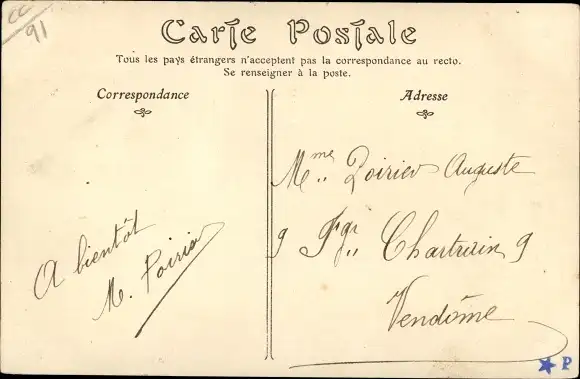 CC
91
Carte Postale
Tous les pays étrangers n'acceptent pas la correspondance au recto.
Se renseigner à la poste.
Correspondance
A bientôt
M. Poirier
Adresse
Mme Poirier Auguste
9 Fg Chartrain 9
Vendôme
P